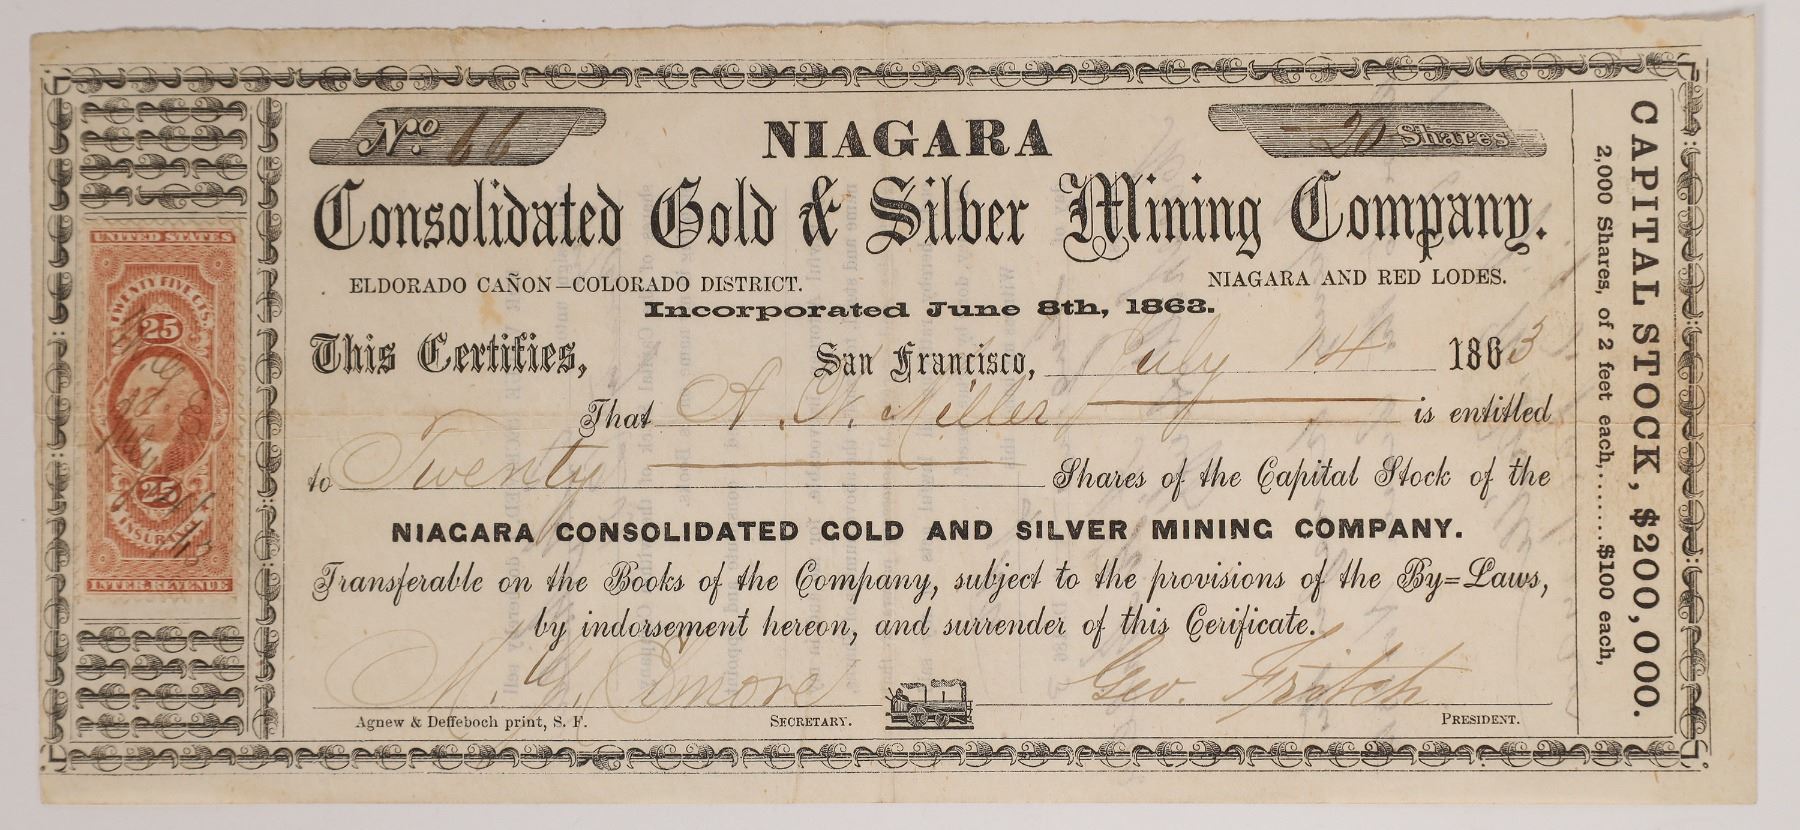 No. 66
- 20 Shares
NIAGARA
Consolidated Gold & Silver Mining Company.
ELDORADO CAÑON—COLORADO DISTRICT.
NIAGARA AND RED LODES.
Incorporated June 8th, 1863.
This Certifies,
San Francisco, July 14 1863
That A. W. Miller is entitled
to Twenty Shares of the Capital Stock of the
NIAGARA CONSOLIDATED GOLD AND SILVER MINING COMPANY.
Transferable on the Books of the Company, subject to the provisions of the By=Laws,
by indorsement hereon, and surrender of this Cerificate.
Elmore
Geo. Fritch
Agnew & Deffeboch print, S. F.
SECRETARY.
PRESIDENT.
CAPITAL STOCK, $200,000.
2,000 Shares, of 2 feet each,......$100 each,
UNITED STATES
TWENTY FIVE CTS.
25
25
INSURANCE
INTER. REVENUE